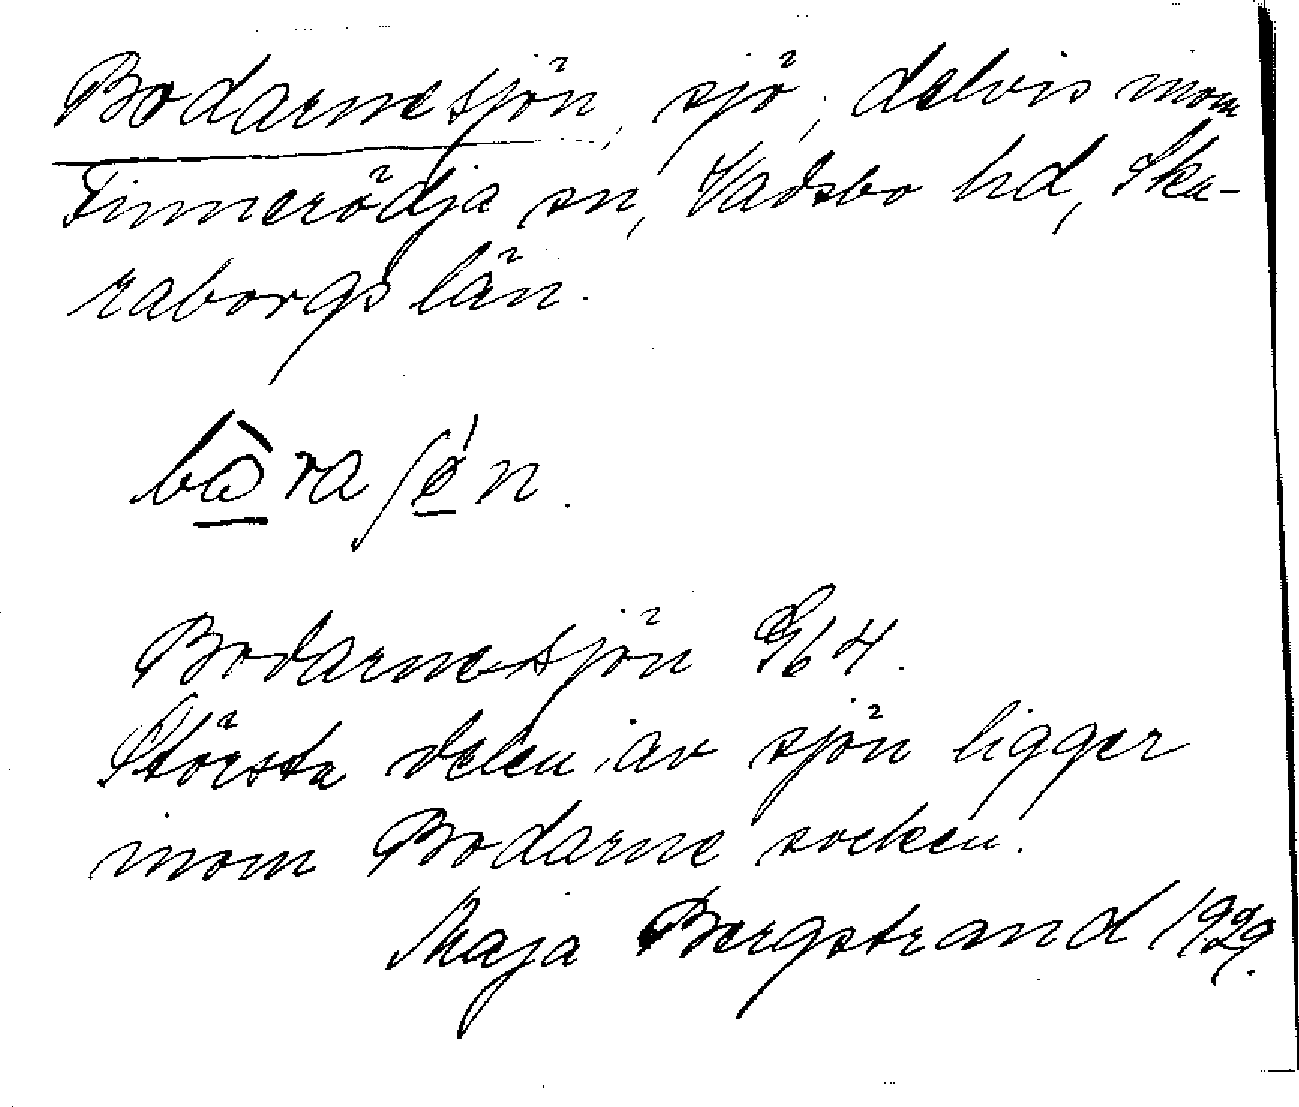 Bodarnesjön, sjö, delvis inom
Finnerödja sn, Vadsbo hd, Ska-
raborgs län.
bò̲ra ʃǿ̲n.
Bodarnesjön GS 4.
Största delen av sjön ligger
inom Bodarne socken.
Maja Bergstrand 1929.